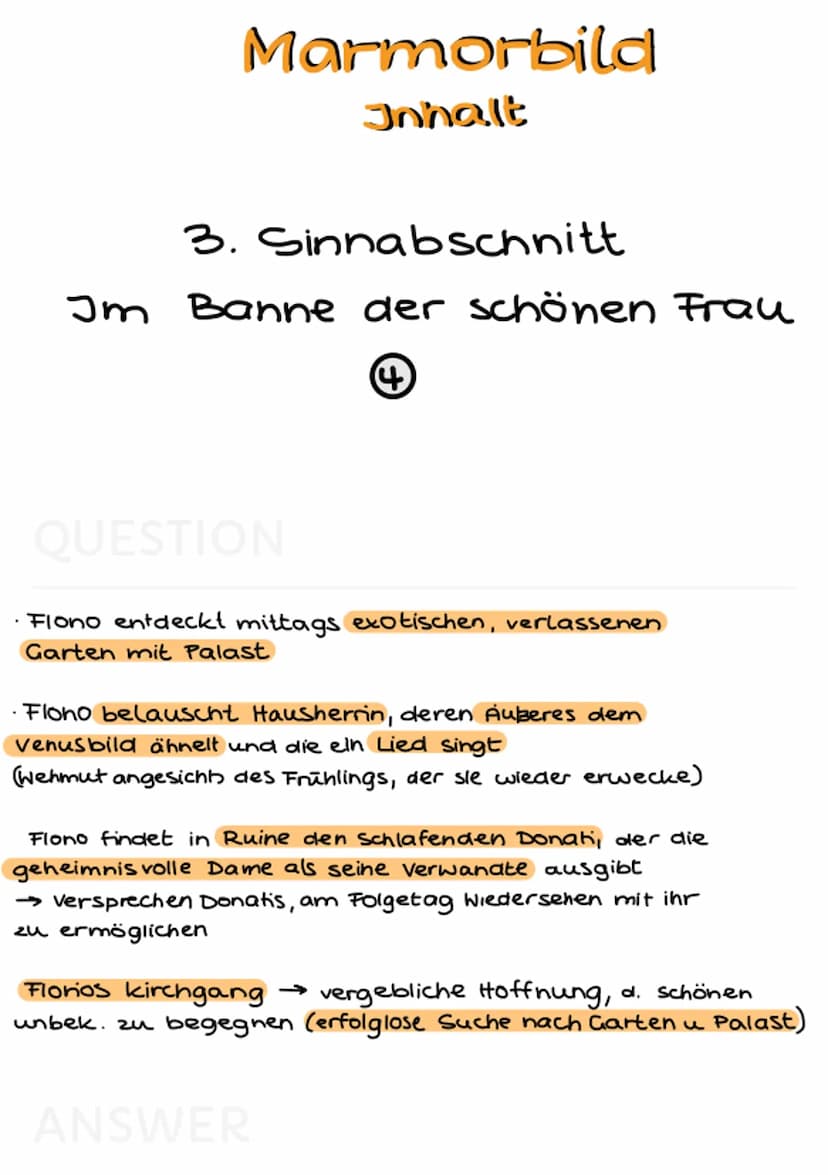 Marmorbild
Inhalt
3. Sinnabschnitt
Im Banne der schönen Frau
4
QUESTION
· Florio entdeckt mittags exotischen, verlassenen
Garten mit Palast
· Florio belauscht Hausherrin, deren Äußeres dem
Venusbild ähnelt und die ein Lied singt
(Wehmut angesichts des Frühlings, der sie wieder erwecke)
Florio findet in Ruine den schlafenden Donati, der die
geheimnisvolle Dame als seine Verwandte ausgibt
→ Versprechen Donatis, am Folgetag Wiedersehen mit ihr
zu ermöglichen
Florios Kirchgang → vergebliche Hoffnung, d. schönen
unbek. zu begegnen (erfolglose Suche nach Garten u Palast)
ANSWER